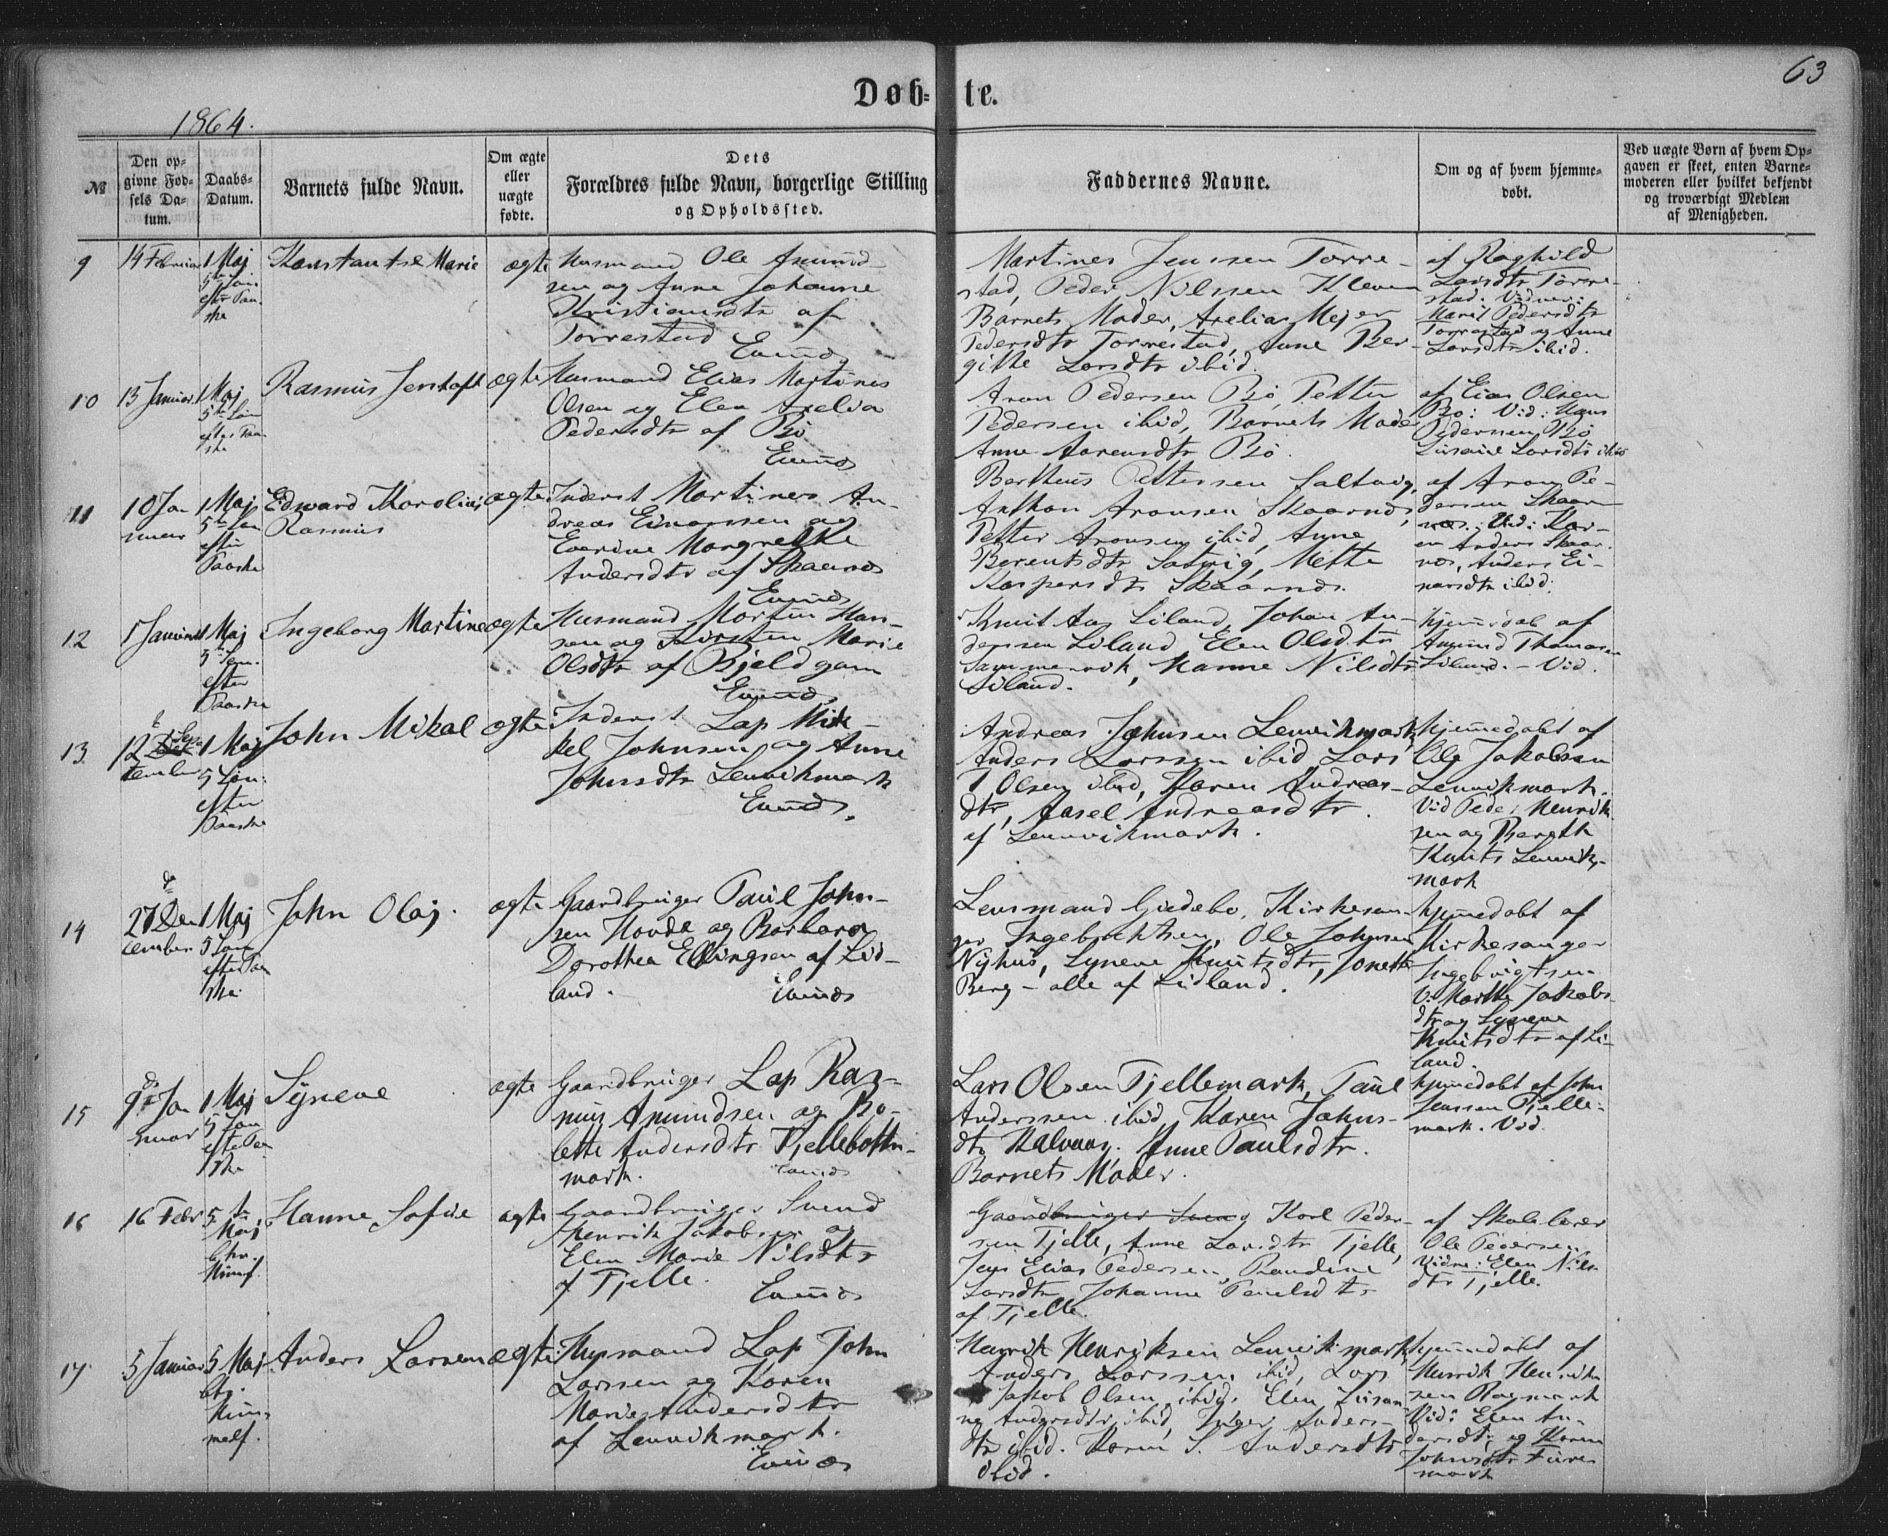 63
Døb- te.
1864.
№
Den op-
givne Fød-
sels Da-
tum.
Daabs-
Datum.
Barnets fulde Navn.
Om ægte
eller
uægte
fødte.
Dets
Forældres fulde Navn, borgerlige Stilling
og Opholdssted.
Faddernes Navne.
Om og af hvem hjemme-
døbt.
Ved uægte Børn af hvem Op-
gaven er skeet, enten Barne-
moderen eller hvilket bekjendt
og troværdigt Medlem
af Menigheden.
9
14 Februar
1 Maj
5te Søn
efter Paa-
ske
Konstantse Marie
ægte
Husmand Ole Amund-
sen og Anne Johanne
Kristiansdtr af
Torrestad
Evends
Martines Jenssen Torre-
stad, Peder Nilssen Kleven
Barnets Moder, Axelias Mejer
Pedersdtr Torrestad, Anne Ber-
gitte Larsdtr ibid.
af Raghild
Larsdtr Torre-
stad. Vidner:
Marit Pedersdtr
Torrestad og Anne
Larsdtr ibid.
10
13 Januar
1 Maj
5te Søn
efter Paa-
ske
Rasmus Jentoft
ægte
Husmand Elias Martines
Olsen og Elen Axelia
Pedersdtr af Bø
Evends
Aron Pedersen Bø, Petter
Pedersen ibid, Barnets Moder
Anne Aarensdtr Bø.
af Eias Olsen
Bø: Vid: Hans
Pedersen Bø
Lusaie Larsdtr ibid
11
10 Ja
nuar
1 Maj
5te Søn
efter
Paaske
Edward Karolius
Rasmus
ægte
Inderst Martines An-
dreas Einarssen og
Everine Margrethe
Andersdtr af Skaanes
Evends
Berthius Pettersen Saltvig,
Anthon Aronsen Skaarnes,
Petter Aronsen ibid, Anne
Berentsdtr Satvig, Mette
Kaspersdtr Skaarnes.
af Aron Pe-
dersen Skaar
nes. Vid: Kar-
en Anders Skaar
nes, Anders Ei-
narsdtr ibid.
12
1 Januar
1 Maj
5 Søn.
efter
Paaske
Ingeborg Martine
ægte
Husmand Morten Han-
sen og Kirsten Marie
Olsdtr af Bjeldgam
Evends
Knut Aas Liland, Johan An-
derssen Liland, Elen Olsdtr
Sammervik, Hanne Nilsdtr
Liland.
hjemedøb af
Amund Thomasen
Liland. - Vid.
13
12 Sep
tember
1 Maj
5 Søn.
efter
Paaske
John Mikal
ægte
Inderst Lap Mik-
kel Johnsen og Anne
Johnsdtr Lenvikmark
Evends.
Andreas Johnsen Lenvikmark,
Anders Larssen ibid, Lars
Olsen ibid, Karen Andreas-
dtr, Aasel Andreasdtr.
af Lenvikmark.
hjemedøbt af
Ole Jakobsen
Lenvikmark.
Vid Peder Henrik
sen og Bereth
Knuts Lenvik-
mark
14
27 De
cember
1 Maj
5 Søn
efter Paa
ske.
John Olaj.
ægte
Gaardbruger Paul John-
sen Hovde og Barbara
Dorothea Ellingsen af Lid-
land.
Evends
Lensmand Gudebo, Kirkesan-
ger Ingebrigtsen, Ole Johnsen
Nyhus, Synneve Knutsdtr, Jonette
Berg - alle af Lidland.
hjemedøbt af
Kirkesanger
Ingebrigtsen
V: Marthe Jakobs
dtr og Syneve
Knutsdtr af Li-
land.
15
9 Ja
nuar
1 Maj
5 Søn
efter Paa
ske
Syneve
ægte
Gaardbruger Lap Ras-
mus Amundsen og Bo-
lette Andersdtr Fjellbottn-
mark.
Evends
Lars Olsen Tjellemark, Paul
Anderssen ibid, Karen Johns-
dtr Kalvaas, Anne Paulsdtr.
Barnets Moder.
hjemedøbt af John
Jenssen Tjelle-
mark. Vid.
16
16 Febr
5te
Maj
Chr.
Himf.
Hanne Sofie
ægte
Gaardbruger Svend
Henrik Jakobsen og
Elen Marie Nilsdtr
af Tjelle.
Evends
Gaardbruger Svend Karl Peder-
sen Tjelle, Anne Larsdtr Tjelle,
Jens Elias Pedersen, Randine
Larsdtr Johanne Paulsdtr
af Tjelle.
af Skolelærer
Ole Pedersen
Vidne: Elen Nils
dtr Tjelle.
17
5 Januar
5 Maj
Chr.
Him-
melf.
Anders Larsen
ægte
Husmand Lap John
Larssen og Karen
Marie Andersdtr
af Lenvikmark.
Evends
Henrik Henriksen Lenvikmark,
Anders Larssen ibid, Lars
Jakob Olsen ibid, Elen Susan-
ne Andersdtr ibid, Inger Anders-
dtr ibid. Karen S. Andersdtr
ibid.
hjemmedøbt af
Henrik Henrik
sen Ragmark
Vid: Elen An-
dersdtr og Karen
Johnsdtr Fure
mark